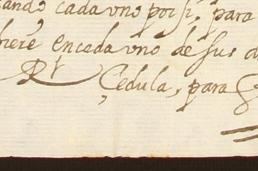 ando cada vno por si, para
here encada vno de sus d
Rl Cedula, para